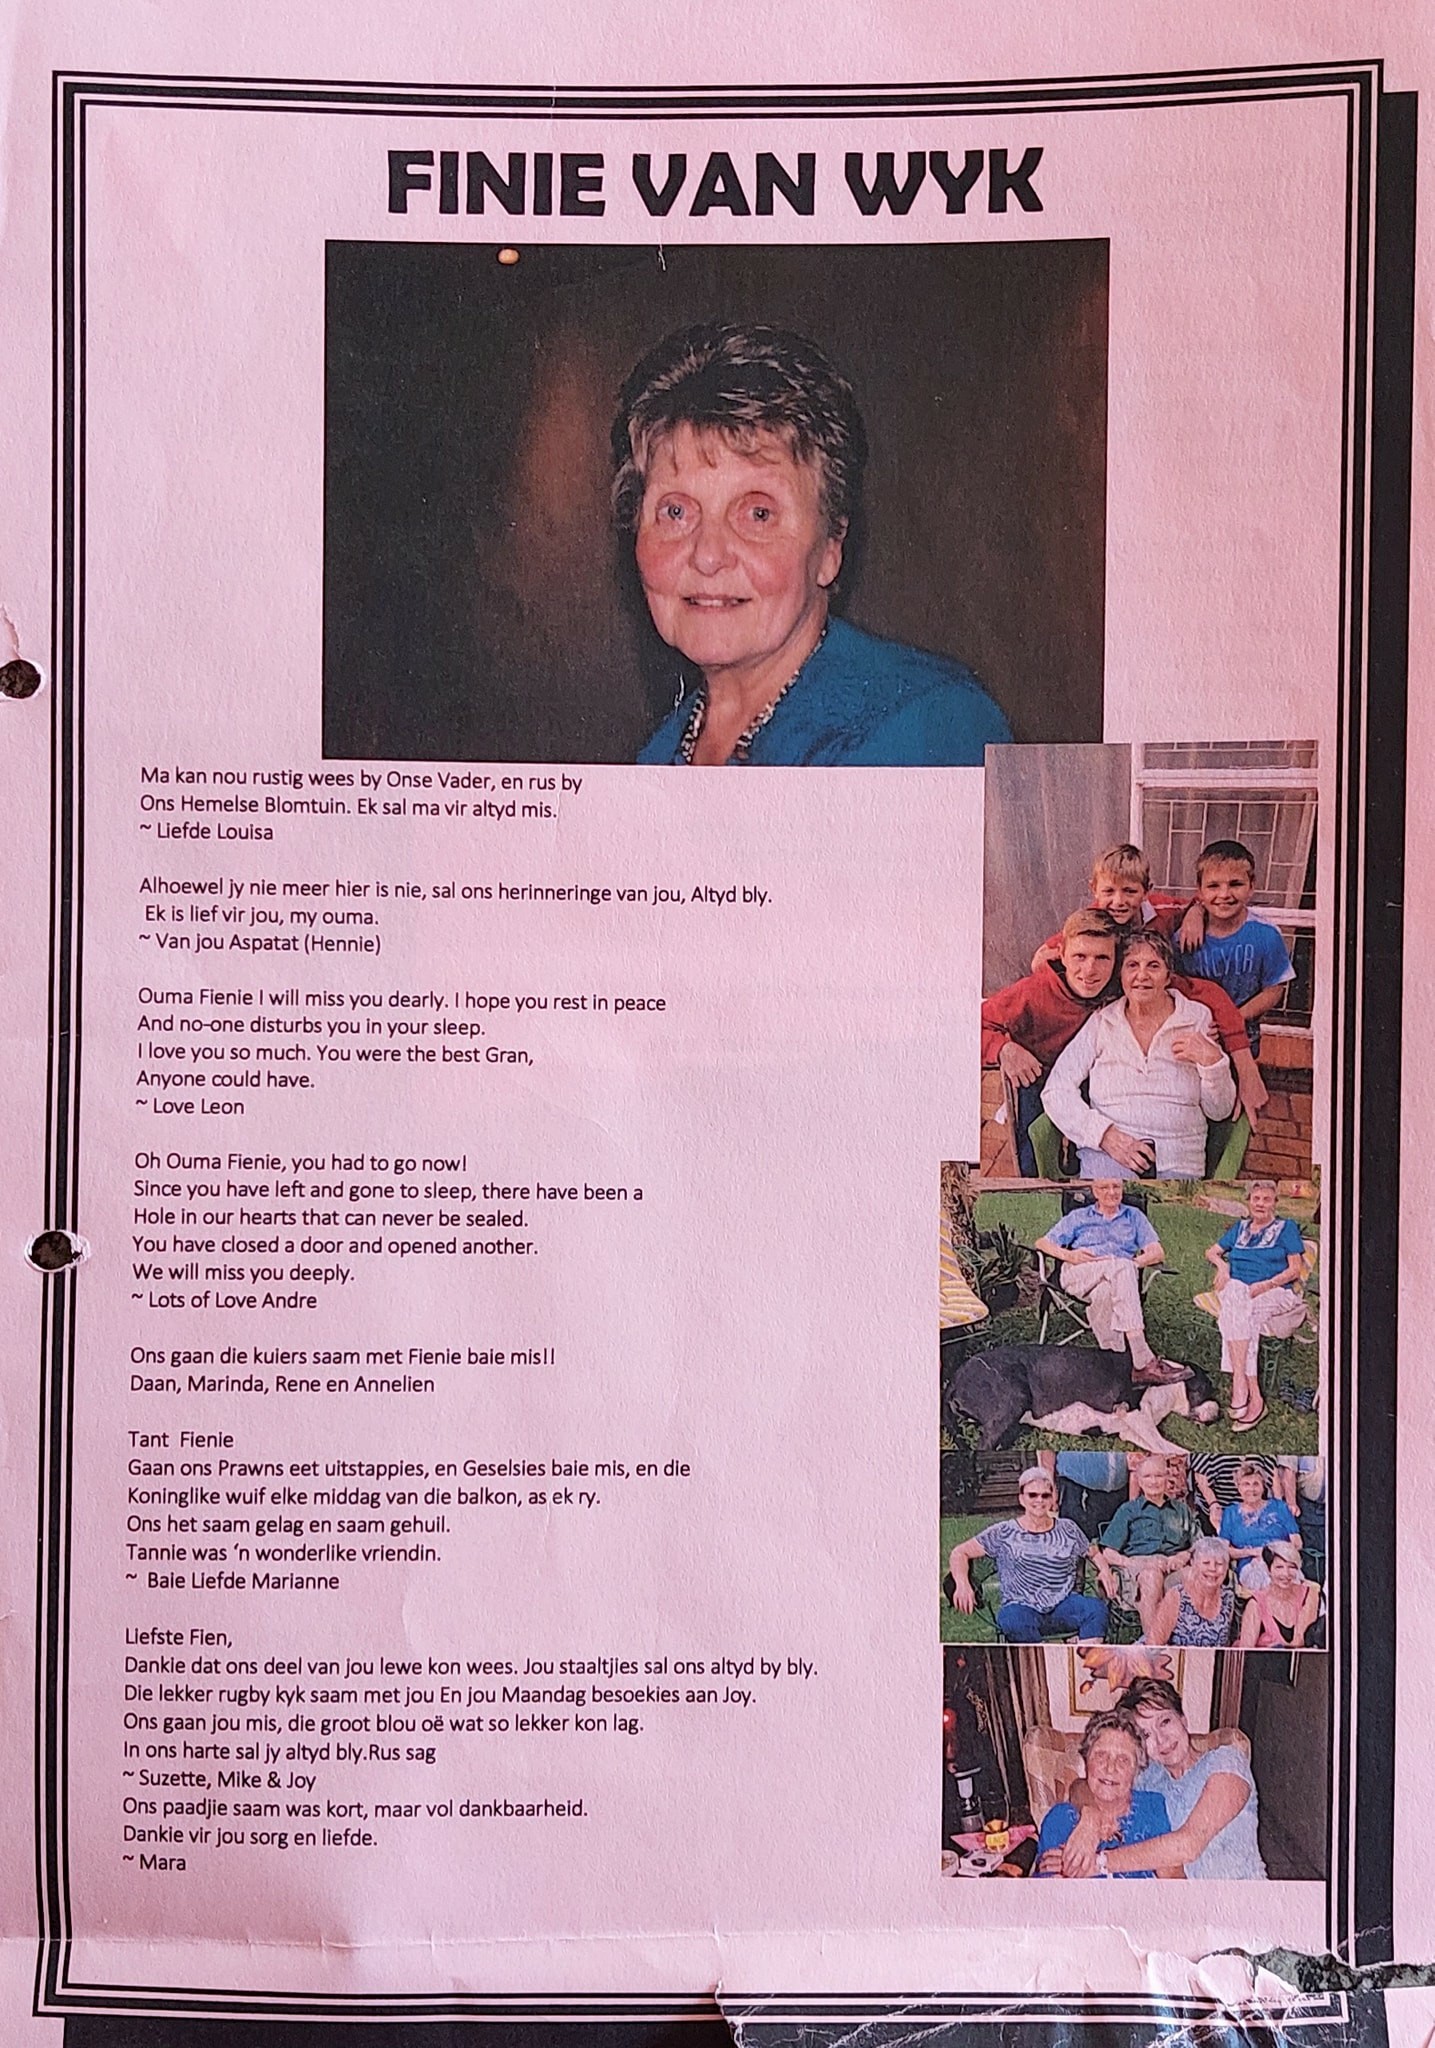 FINIE VAN WYK
Ma kan nou rustig wees by Onse Vader, en rus by
Ons Hemelse Blomtuin. Ek sal ma vir altyd mis.
~ Liefde Louisa
Alhoewel jy nie meer hier is nie, sal ons herinneringe van jou, Altyd bly.
Ek is lief vir jou, my ouma.
~ Van jou Aspatat (Hennie)
Ouma Fienie I will miss you dearly. I hope you rest in peace
And no-one disturbs you in your sleep.
I love you so much. You were the best Gran,
Anyone could have.
~ Love Leon
Oh Ouma Fienie, you had to go now!
Since you have left and gone to sleep, there have been a
Hole in our hearts that can never be sealed.
You have closed a door and opened another.
We will miss you deeply.
~ Lots of Love Andre
Ons gaan die kuiers saam met Fienie baie mis!!
Daan, Marinda, Rene en Annelien
Tant  Fienie
Gaan ons Prawns eet uitstappies, en Geselsies baie mis, en die
Koninglike wuif elke middag van die balkon, as ek ry.
Ons het saam gelag en saam gehuil.
Tannie was ‘n wonderlike vriendin.
~  Baie Liefde Marianne
Liefste Fien,
Dankie dat ons deel van jou lewe kon wees. Jou staaltjies sal ons altyd by bly.
Die lekker rugby kyk saam met jou En jou Maandag besoekies aan Joy.
Ons gaan jou mis, die groot blou oë wat so lekker kon lag.
In ons harte sal jy altyd bly.Rus sag
~ Suzette, Mike & Joy
Ons paadjie saam was kort, maar vol dankbaarheid.
Dankie vir jou sorg en liefde.
~ Mara